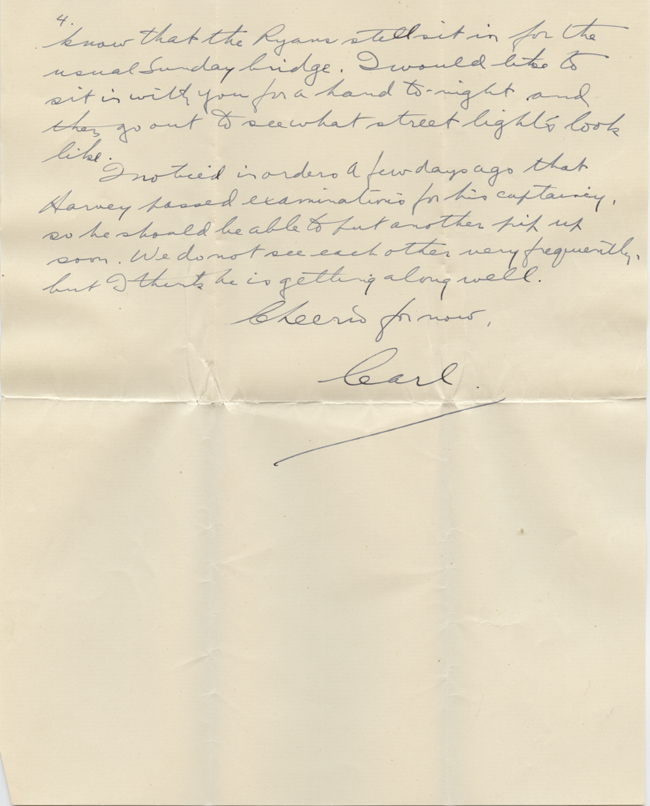 4.
know that the Ryans still sit in for the
usual Sunday bridge. I would like to
sit in with you for a hand to-night and
then go out to see what street lights look
like.
I noticed in orders a few days ago that
Harvey passed examinations for his captaincy,
so he should be able to put another pip up
soon. We do not see each other very frequently,
but I think he is getting along well.
Cheerio for now,
Carl.